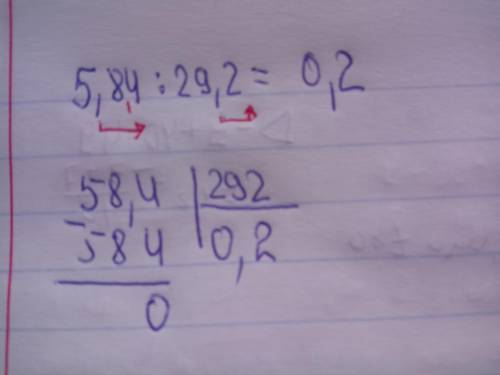 5,84 : 29,2 = 0,2
58,4 | 292
- 584 | 0,2
0